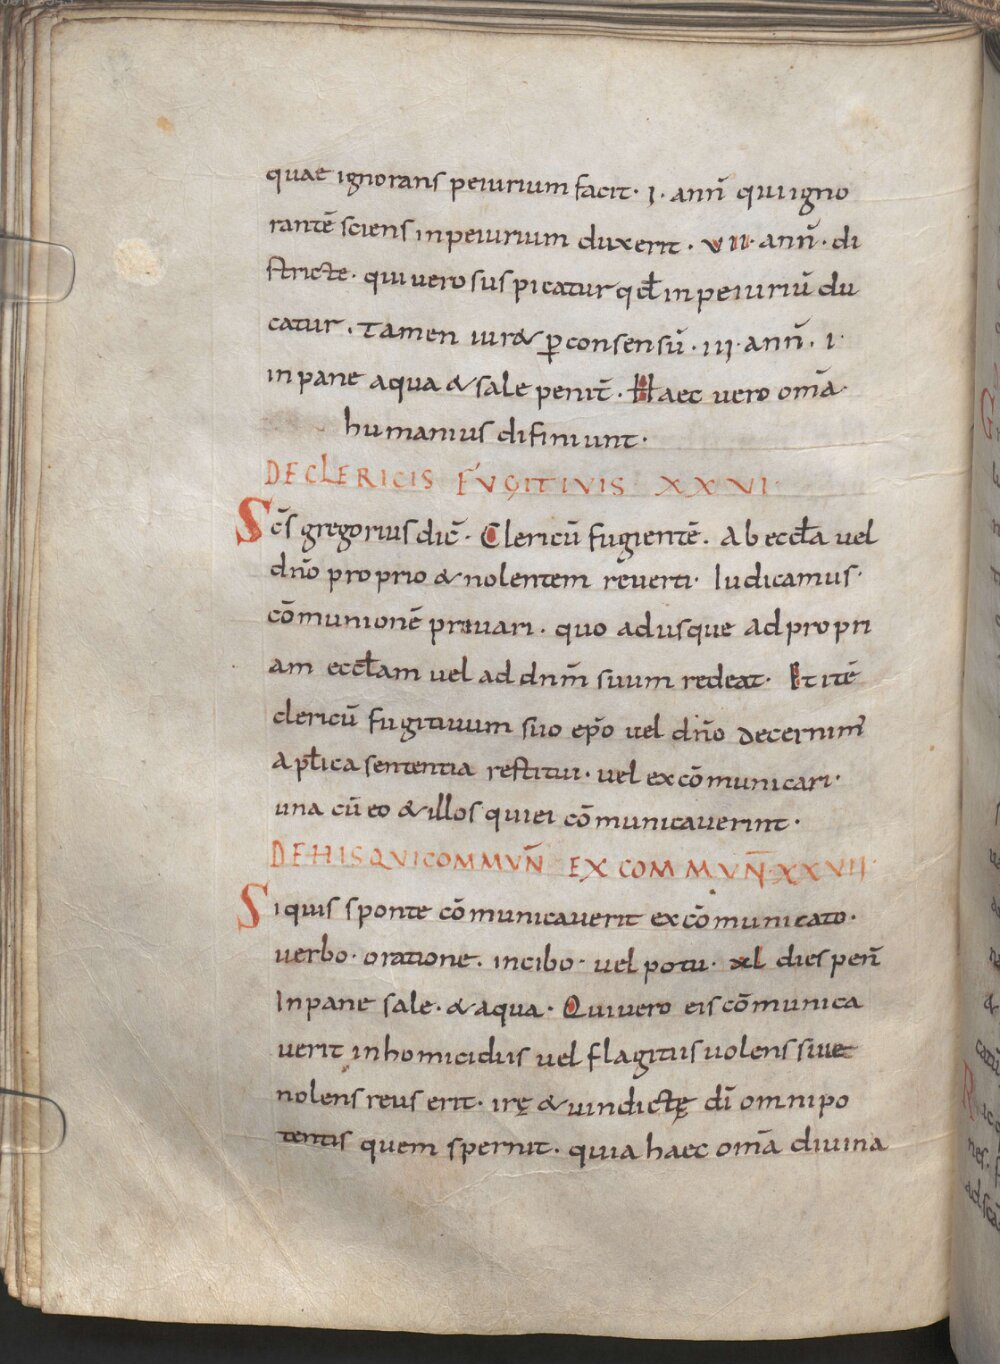 quae ignorans peiurium facit · I · ann̄ qui igno
rantē sciens in peiurium duxerit · VII · ann̄ · di
stricte · qui vero suspicatur qđ in peiuriū du
catur · Tamen iur& ꝑ consensū · III · ann̄ · I ·
in pane aqua & sale penit̄ · Haec vero om̄a
humanius difiniunt ·
DE CLERICIS FUGITIVIS XXVI
Sc̄s gregorius dic̄ · Clericū fugientē · Ab eccła vel
dn̄o proprio & nolentem reverti · Iudicamus ·
cōmunionē privari · quo adusque ad propri
am eccłam vel ad dnm̄ suum redeat · Et itē
clericū fugitivum suo ep̄o vel dn̄o decernim᾽
apłica sententia restitui · vel excōmunicari ·
una cū eo & illos qui ei cōmunicaverint ·
DE HIS QVI COMMVN̄ EXCOMMVN̄ · XXVII ·
Si quis sponte cōmunicaverit excōmunicato ·
verbo · oratione · in cibo · vel potu · xl dies pen̄
In pane sale · & aqua · Qui vero eis cōmunica
verit in homicidiis vel flagitiis volens sive
nolens reus erit · irę & vindictę dī omnipo
tentis quem spernit · quia haec om̄a divina